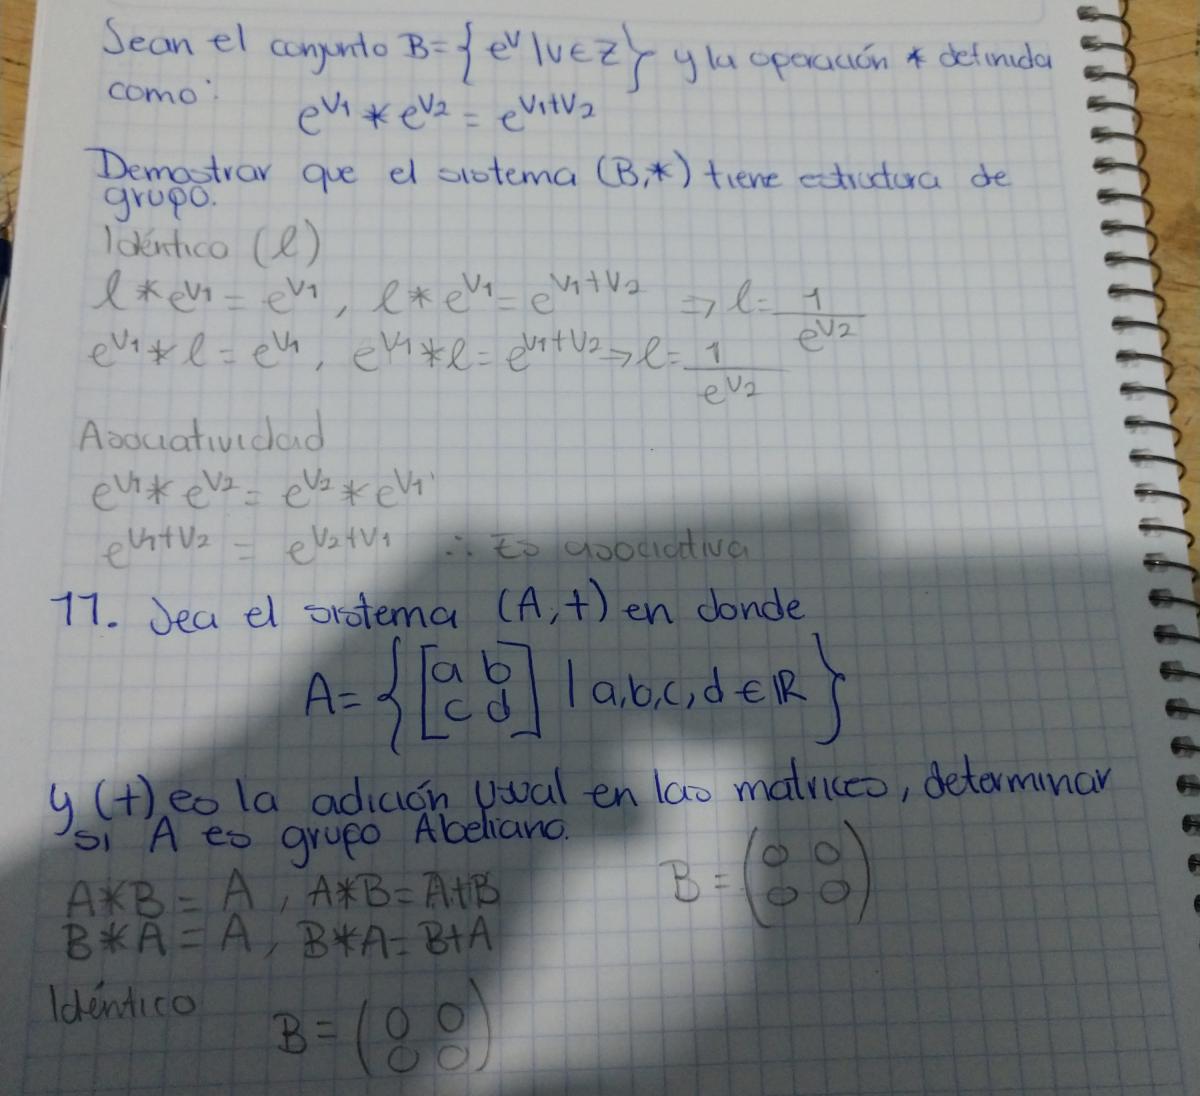 Sean el conjunto B={e^v | v ∈ Z} y la operación * definida
como:
e^v1 * e^v2 = e^v1+v2
Demostrar que el sistema (B,*) tiene estructura de
grupo.
Idéntico (l)
l * e^v1 = e^v1 , l * e^v1 = e^v1+v2 => l = 1/e^v2
e^v1 * l = e^v1 , e^v1 * l = e^v1+v2 => l = 1/e^v2
Asociatividad
e^v1 * e^v2 = e^v2 * e^v1
e^v1+v2 = e^v2+v1 ∴ Es asociativa
11. Sea el sistema (A,+) en donde
A = { [a b
c d] | a,b,c,d ∈ ℝ }
y (+) es la adición usual en las matrices, determinar
si A es grupo Abeliano.
A*B = A , A*B = A+B B = (0 0
0 0)
B*A = A , B*A = B+A
Idéntico B = (0 0
0 0)